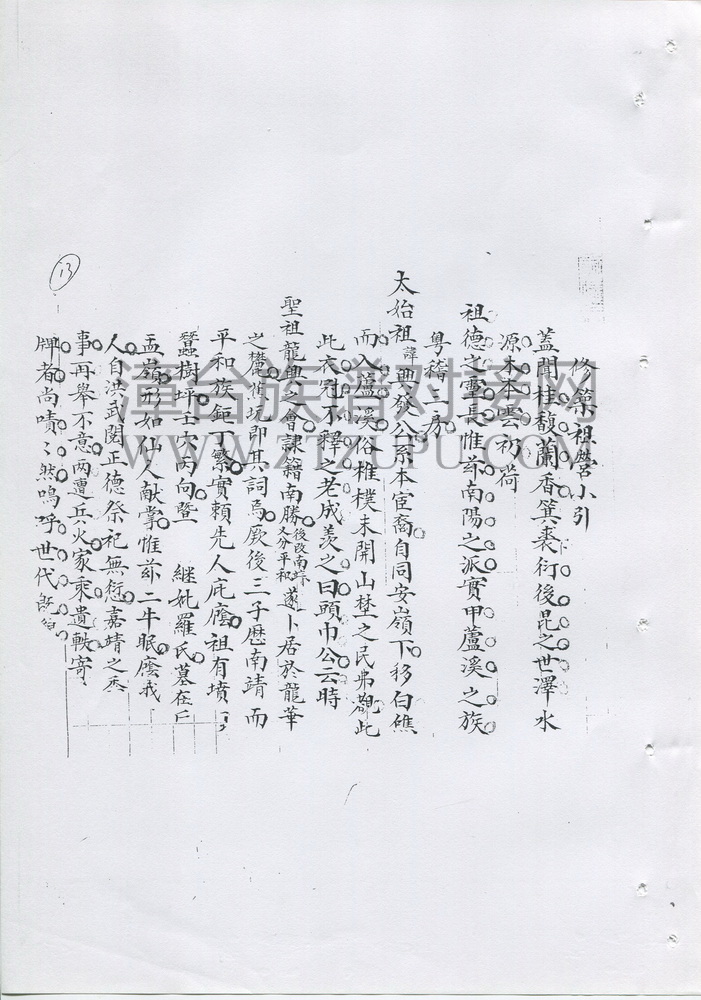 修築祖塋小引
蓋聞桂馥蘭香箕裘衍後昆之世澤水
源木本雲礽荷
祖德之靈長惟茲南陽之派實甲蘆溪之族
粵稽二房
太始祖諱興發公系本宦裔自同安嶺下移白礁
而入蘆溪俗椎樸未開山埜之民弗觀此
此衣冠不釋之老成羨之曰頭巾公云時
聖祖龍興之會隸籍南勝後改南靖又分平和遂卜居於龍華
之坑即其詞焉厥後三子歷南靖而
平和族鉅丁繁實賴先人庇廕祖有墳
蠶樹坪壬穴丙向暨 継妣羅氏墓在
盂嶺形如仙人献掌惟茲二牛眠廕我
人自洪武閱正德祭祀無愆嘉靖之
事再舉不意兩遭兵火家乘遺軼寄
牌者尚嘖〻然嗚呼世代
13
臺台族譜对接网
WWW.ZTZUPU.COM